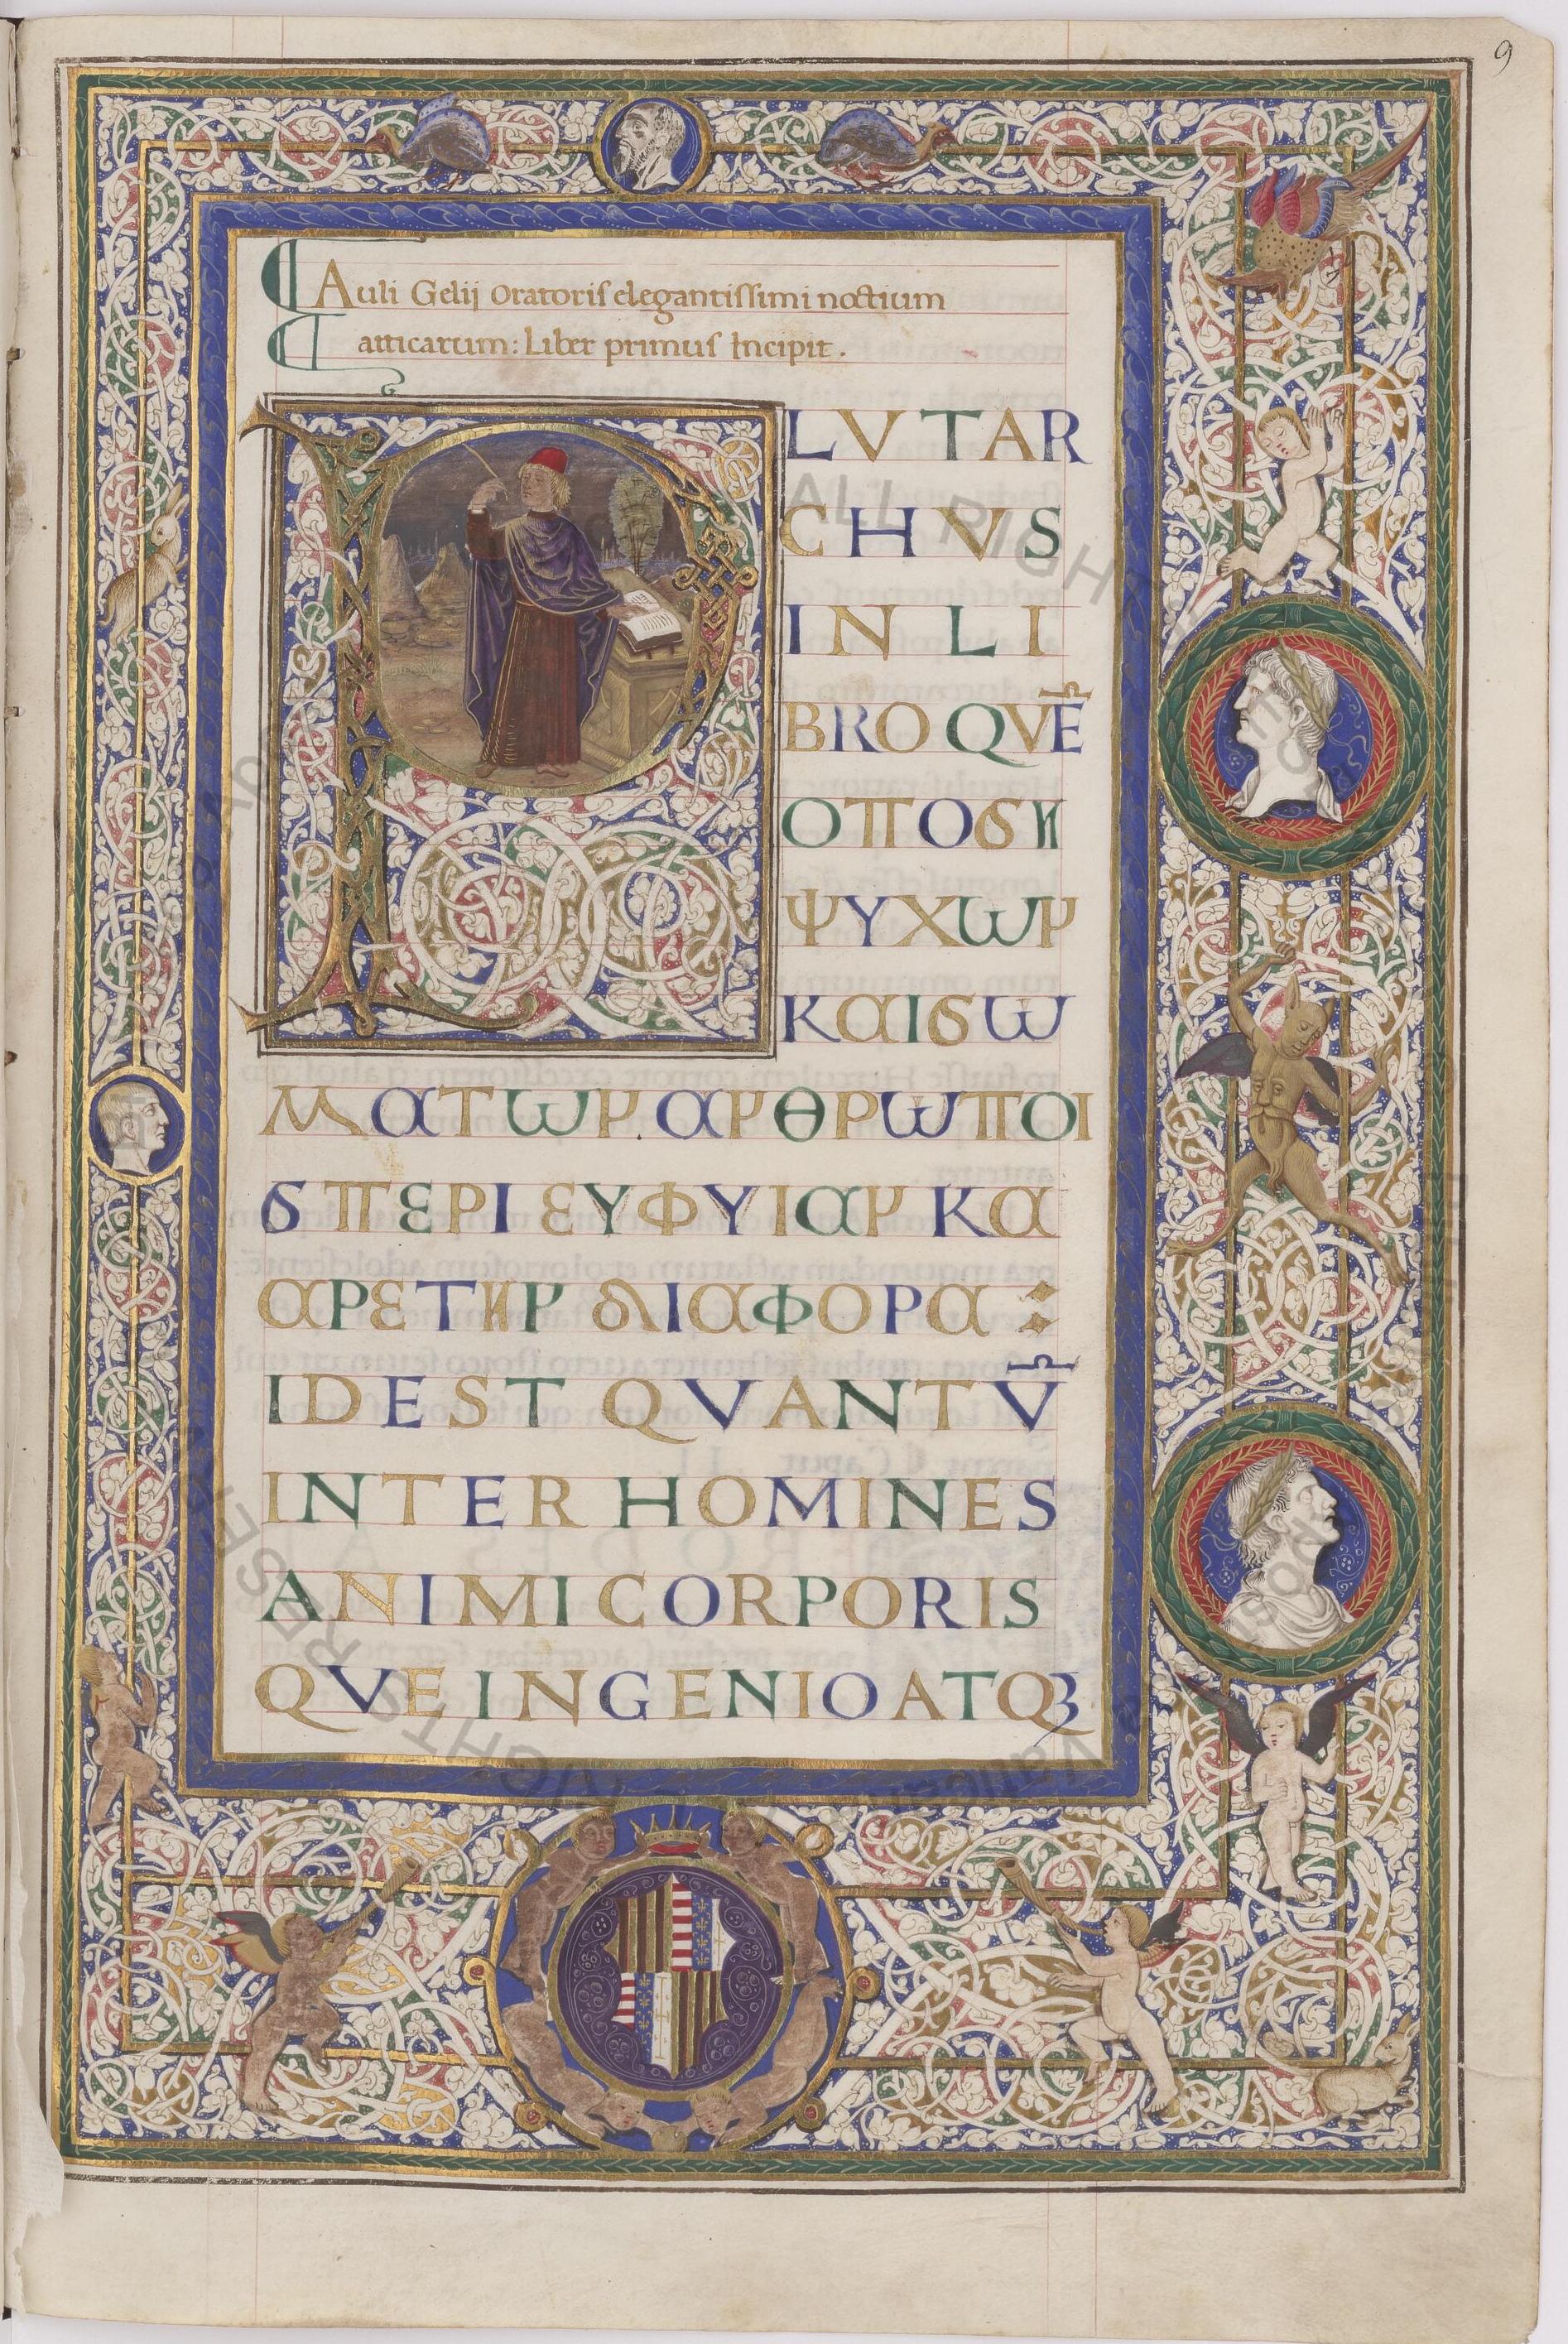 9
Auli Gelij oratoris elegantissimi noctium
atticarum: Liber primus Incipit.
PLVTAR
CHVS
IN LI
BRO QVĒ
ΟΠΟϬΗ
ΨΥΧΩΝ
ΚΑΙϬΩ
ΜΑΤΩΝ.ΑΝΘΡΩΠΟΙ
Ϭ ΠΕΡΙ ΕΥΦΥΙΑΝ ΚΑ
ΑΡΕΤΗΝ ΔΙΑΦΟΡΑ :
IDEST QVANTV̄
INTER HOMINES
ANIMI CORPORIS
QVE INGENIO ATQ3